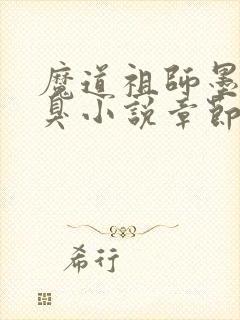 魔道祖師墨
臭小説章節
希行